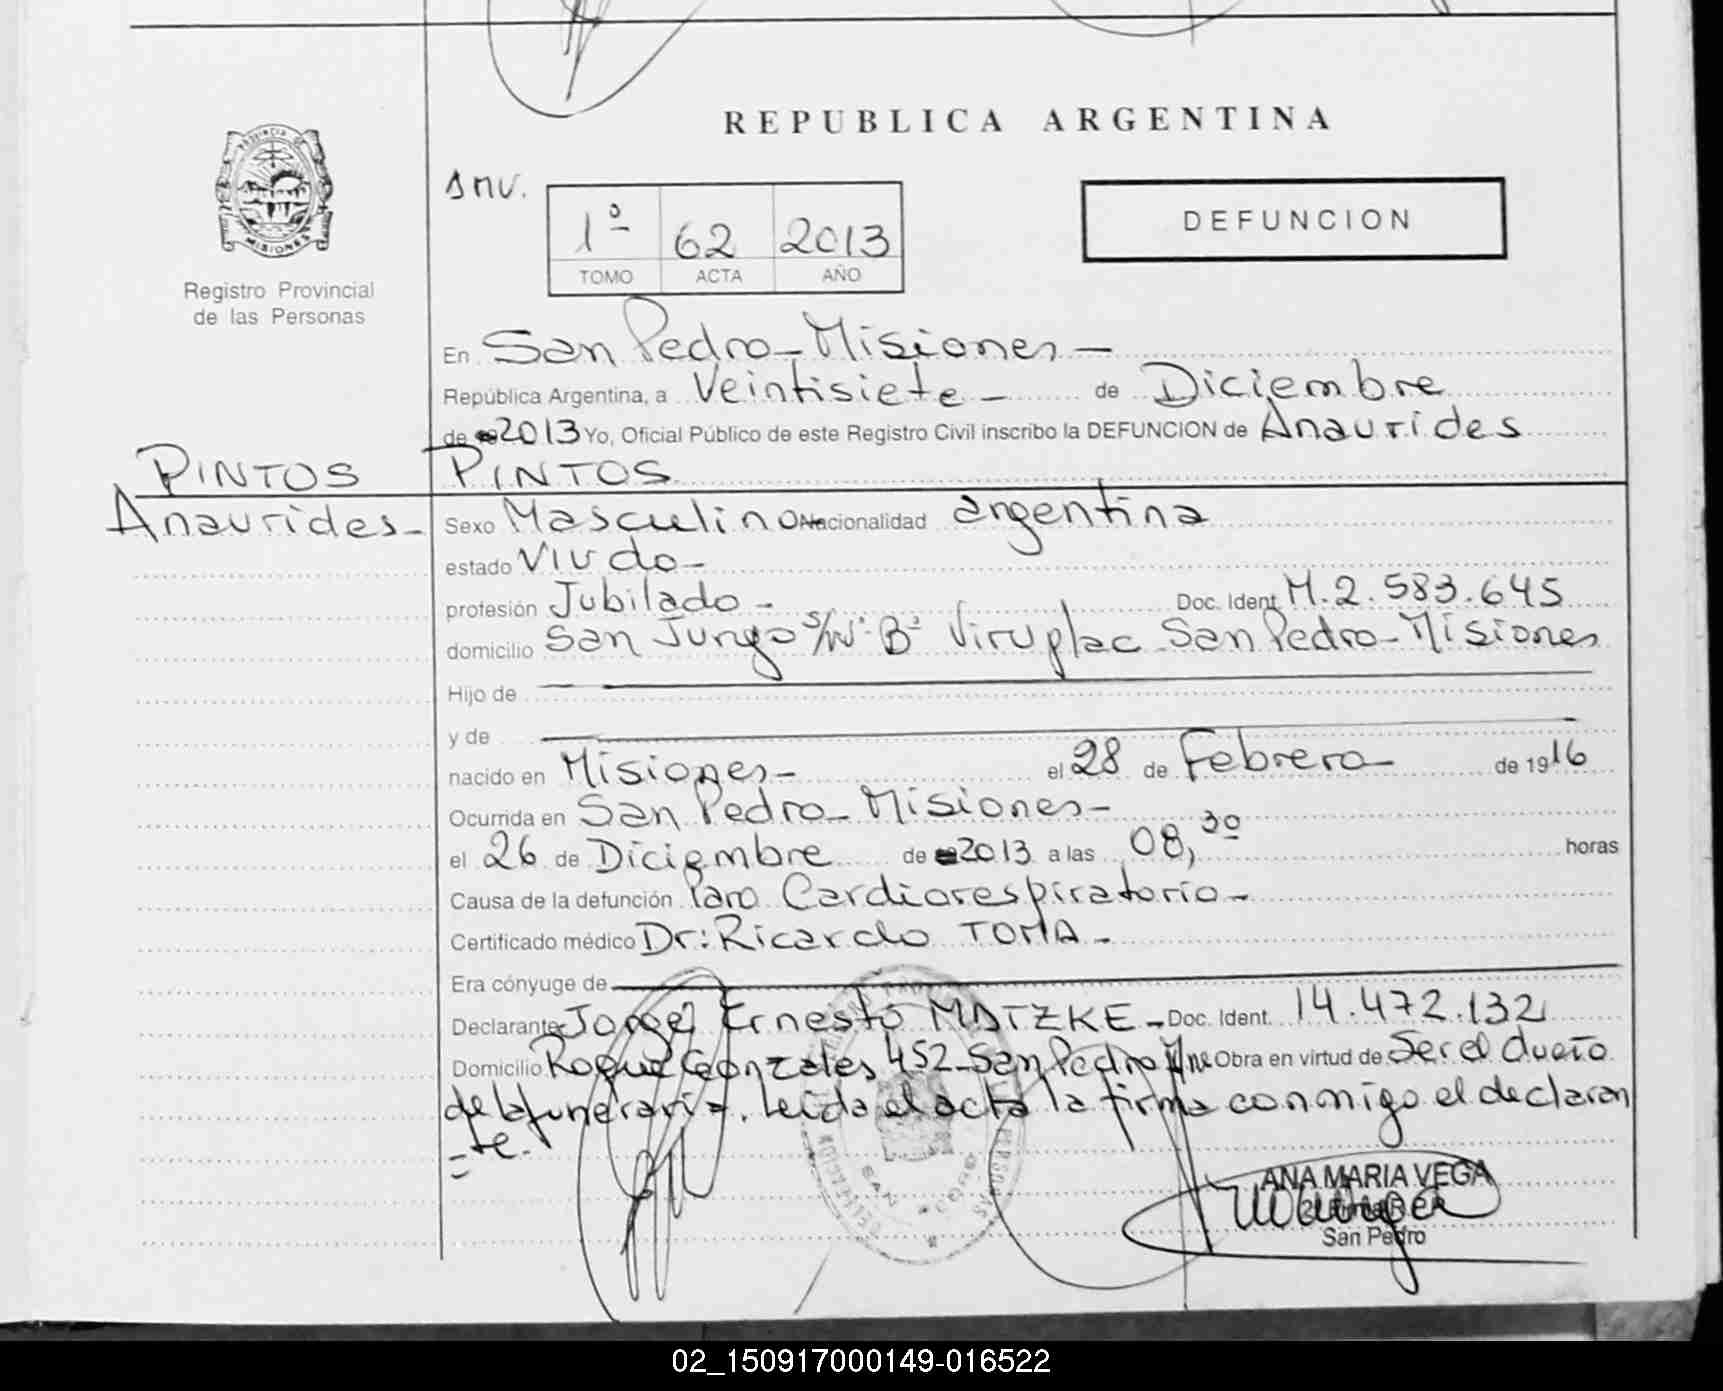 REPUBLICA ARGENTINA
PROVINCIA DE
MISIONES
Registro Provincial
de las Personas
1º 62 2013
TOMO ACTA AÑO
DEFUNCION
En San Pedro - Misiones -
República Argentina, a Veintisiete - de Diciembre
de 2013 Yo, Oficial Público de este Registro Civil inscribo la DEFUNCION de Anaurides
PINTOS
PINTOS
Anaurides -
Sexo Masculino Nacionalidad argentina
estado Viudo -
profesión Jubilado - Doc. Ident. M. 2.583.645
domicilio San Jungo s/Nº Bº Viruplac San Pedro - Misiones
Hijo de
y de
nacido en Misiones - el 28 de Febrero - de 1916
Ocurrida en San Pedro - Misiones -
el 26 de Diciembre de 2013 a las 08,30 horas
Causa de la defunción Paro Cardiorespiratorio -
Certificado médico Dr: Ricardo TOMA -
Era cónyuge de
Declarante Jorge Ernesto MATZKE - Doc. Ident. 14.472.132
Domicilio Roque Gonzales 452 - San Pedro Mnes Obra en virtud de Ser el dueño
de la funeraria. Leida el acta la firma conmigo el declaran
-te.
ANA MARIA VEGA
San Pedro
02_150917000149-016522